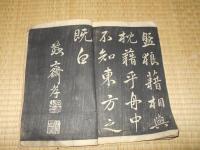 盤狼藉相與
枕藉乎舟中
不知東方之
既白